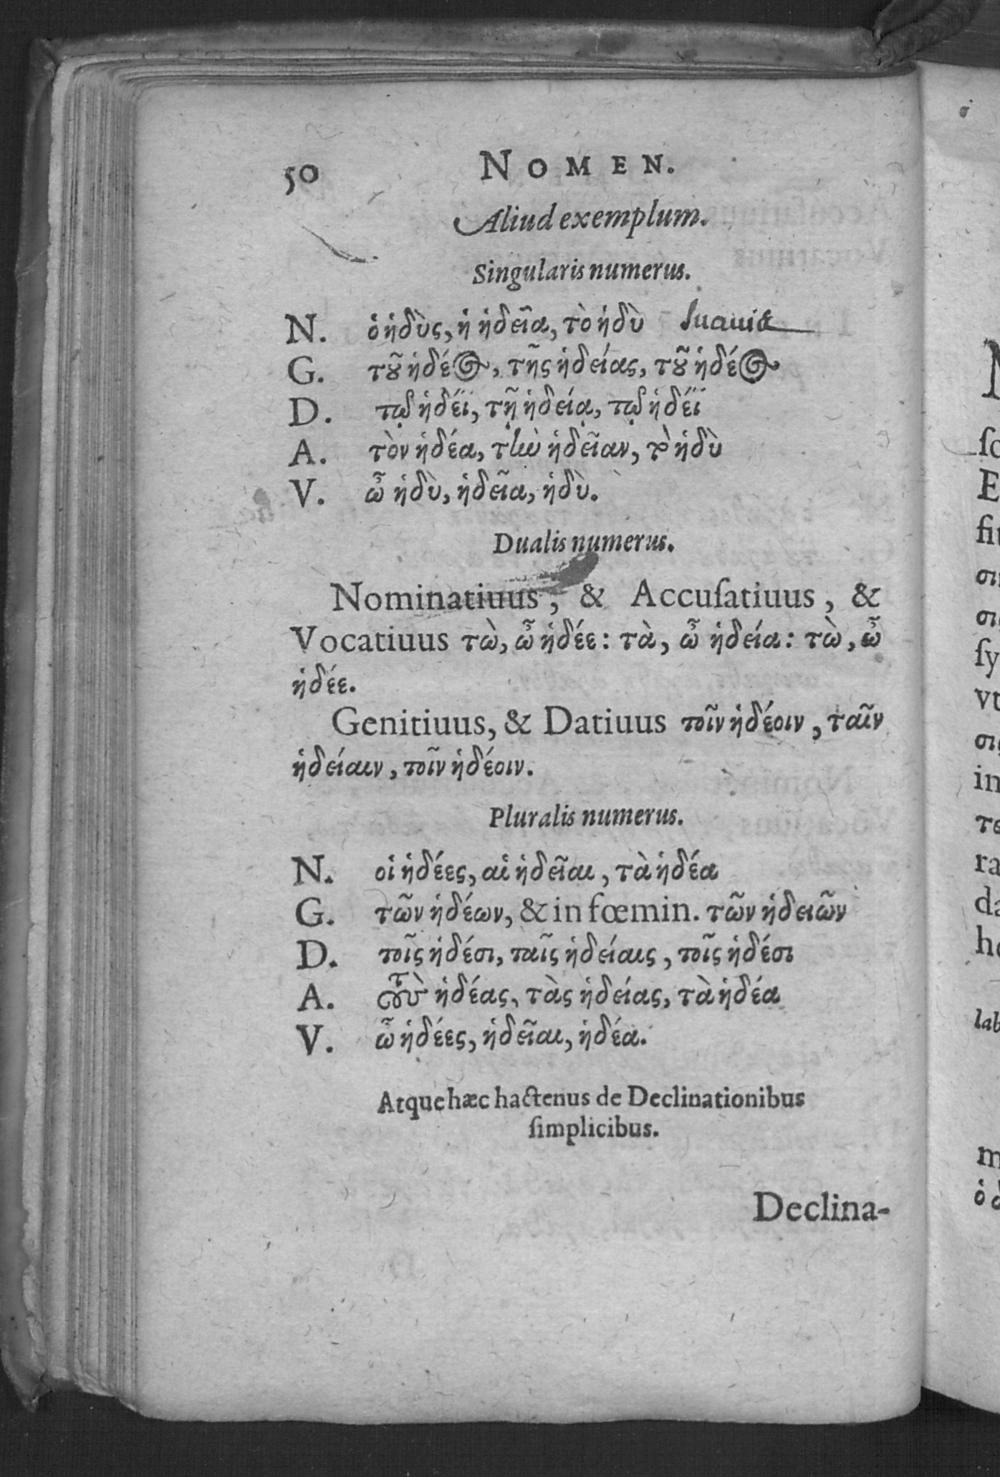 50 NOMEN.
Aliud exemplum.
Singularis numerus.
N. ὁ ἡδὺς, ἡ ἡδεῖα, τὸ ἡδὺ suauis
G. τοῦ ἡδέος, τῆς ἡδείας, τοῦ ἡδέος
D. τῷ ἡδέϊ, τῇ ἡδείᾳ, τῷ ἡδέϊ
A. τὸν ἡδέα, τὴν ἡδεῖαν, τὸ ἡδὺ
V. ὦ ἡδὺ, ἡδεῖα, ἡδὺ.
Dualis numerus.
Nominatiuus, & Accuſatiuus, &
Vocatiuus τὼ, ὦ ἡδέε: τὰ, ὦ ἡδεία: τὼ, ὦ
ἡδέε.
Genitiuus, & Datiuus τοῖν ἡδέοιν, ταῖν
ἡδείαιν, τοῖν ἡδέοιν.
Pluralis numerus.
N. οἱ ἡδέες, αἱ ἡδεῖαι, τὰ ἡδέα
G. τῶν ἡδέων, & in fœmin. τῶν ἡδειῶν
D. τοῖς ἡδέσι, ταῖς ἡδείαις, τοῖς ἡδέσι
A. τοὺς ἡδέας, τὰς ἡδείας, τὰ ἡδέα
V. ὦ ἡδέες, ἡδεῖαι, ἡδέα.
Atque hæc hactenus de Declinationibus
ſimplicibus.
Declina-